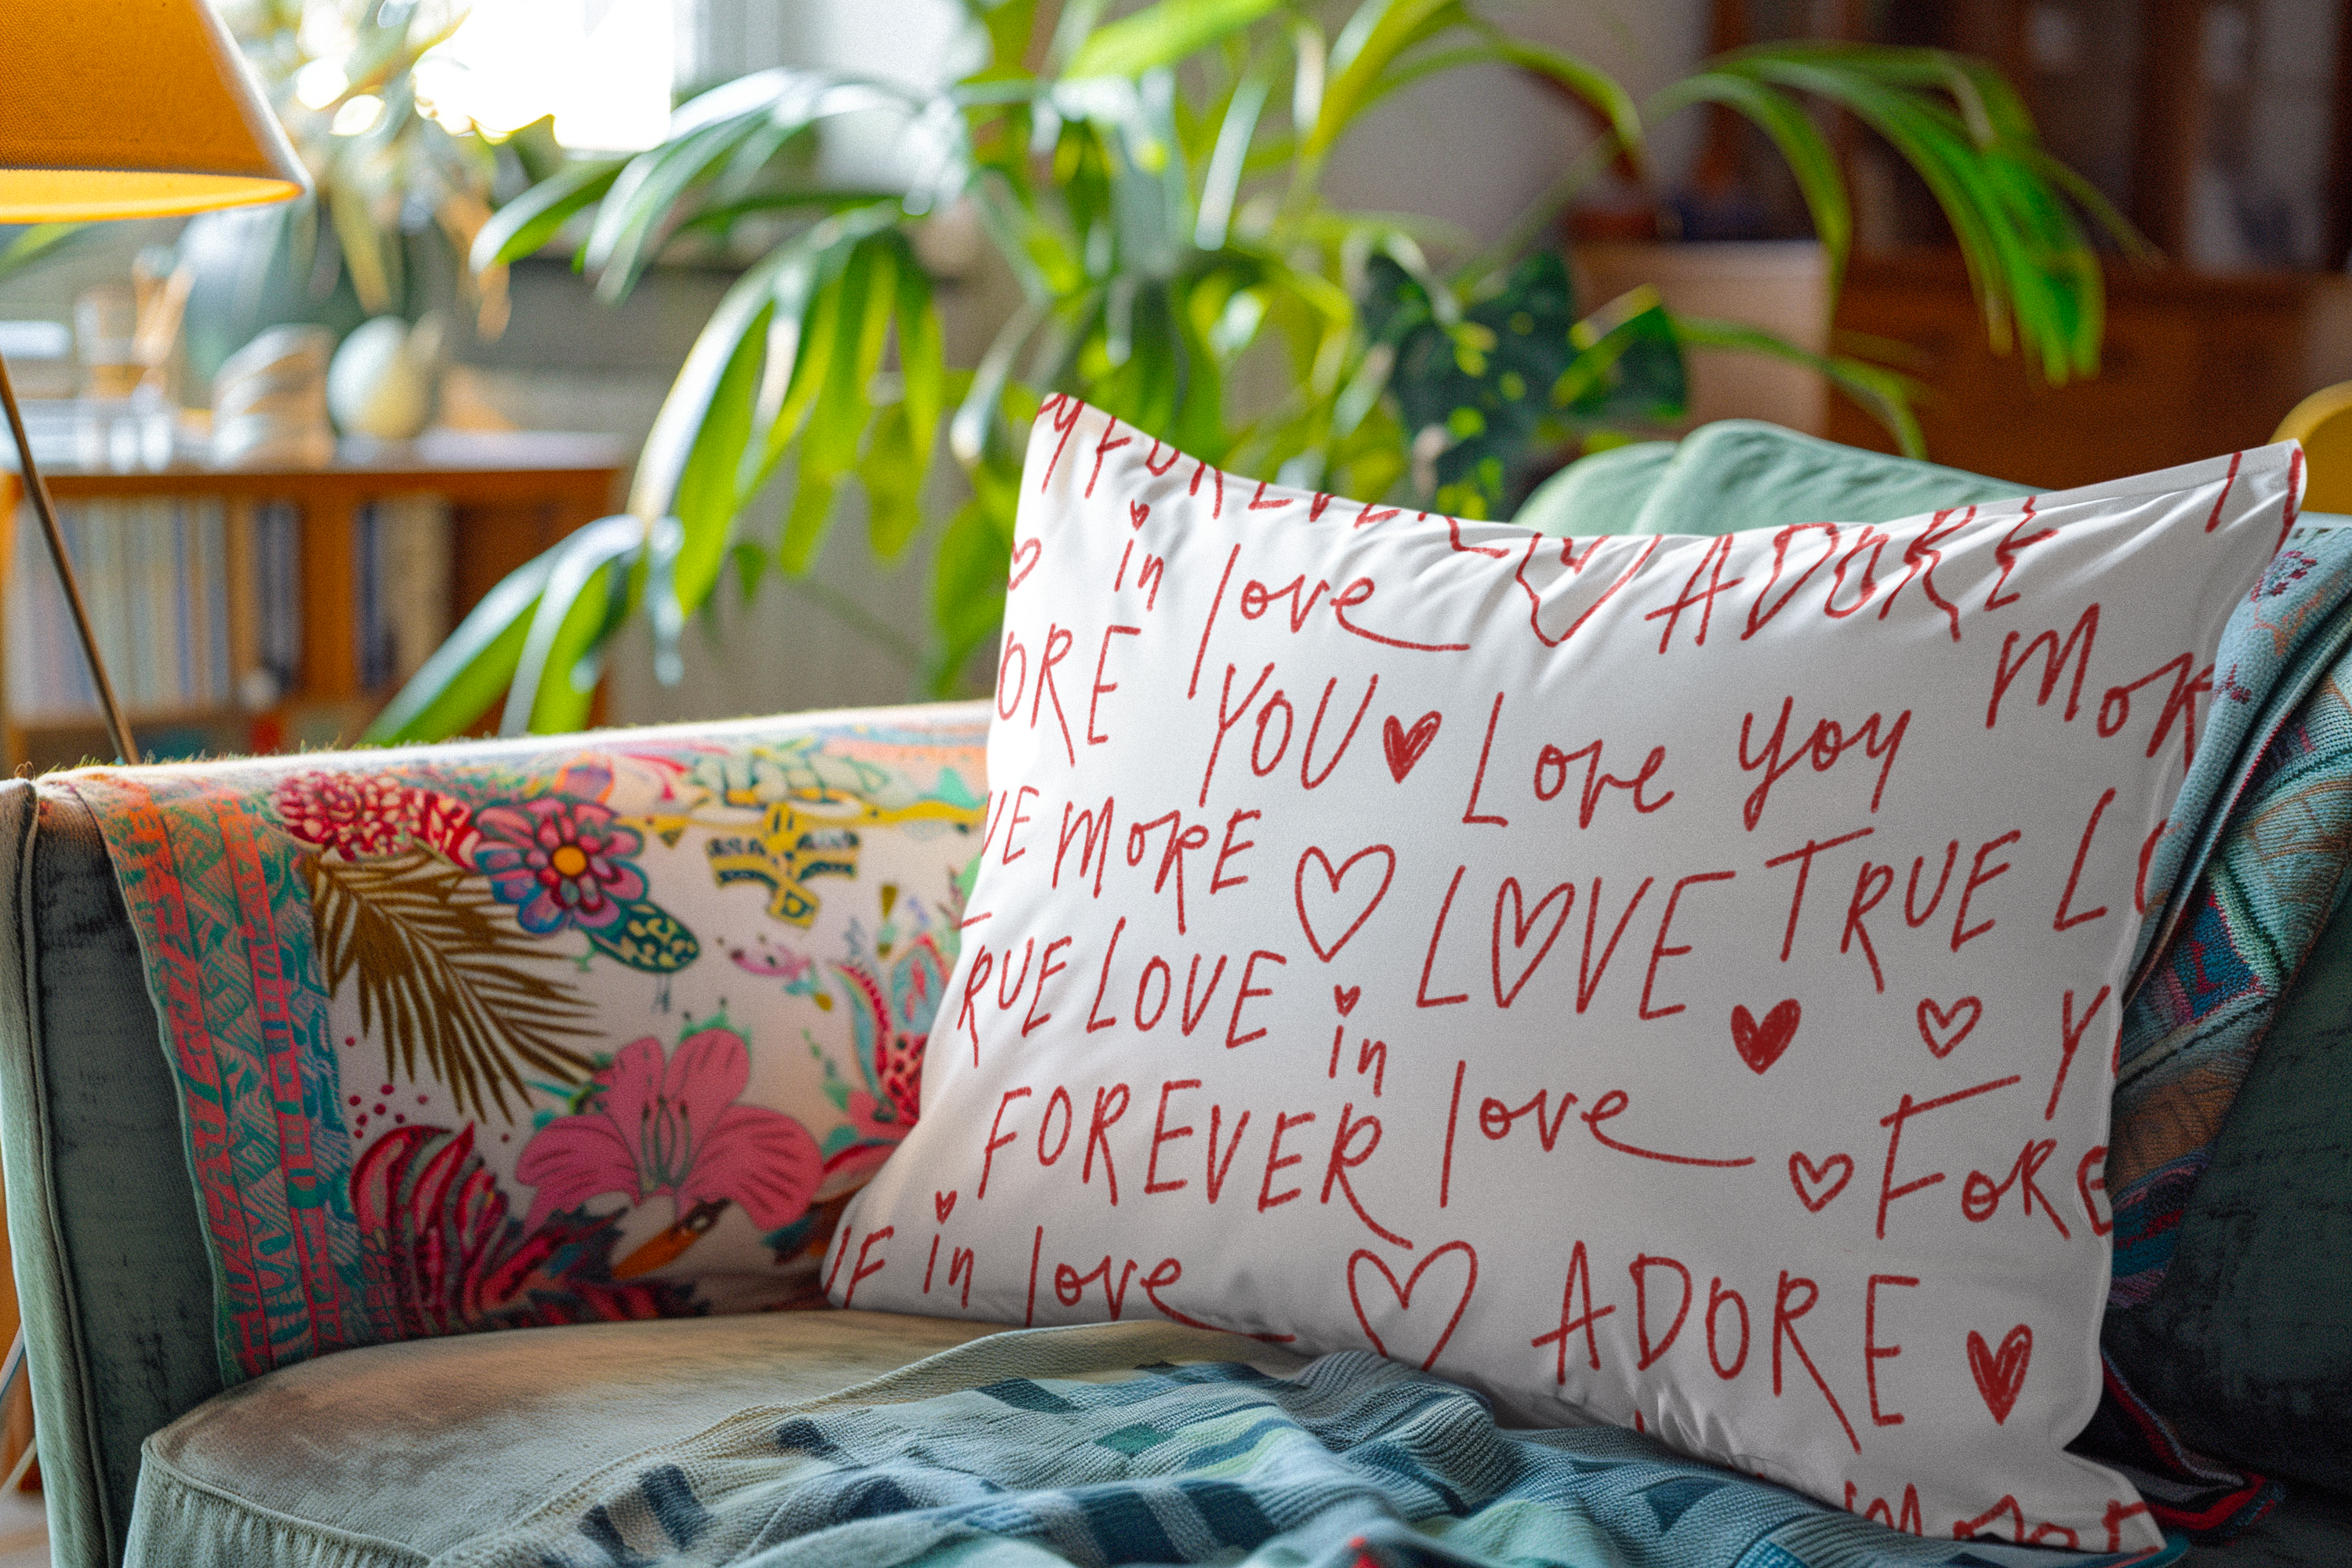 Y FOREVER ADORE
in love
ORE YOU Love you MOR
VE MORE LOVE TRUE LO
TRUE LOVE in love Y
FOREVER FORE
in love ADORE
MORE